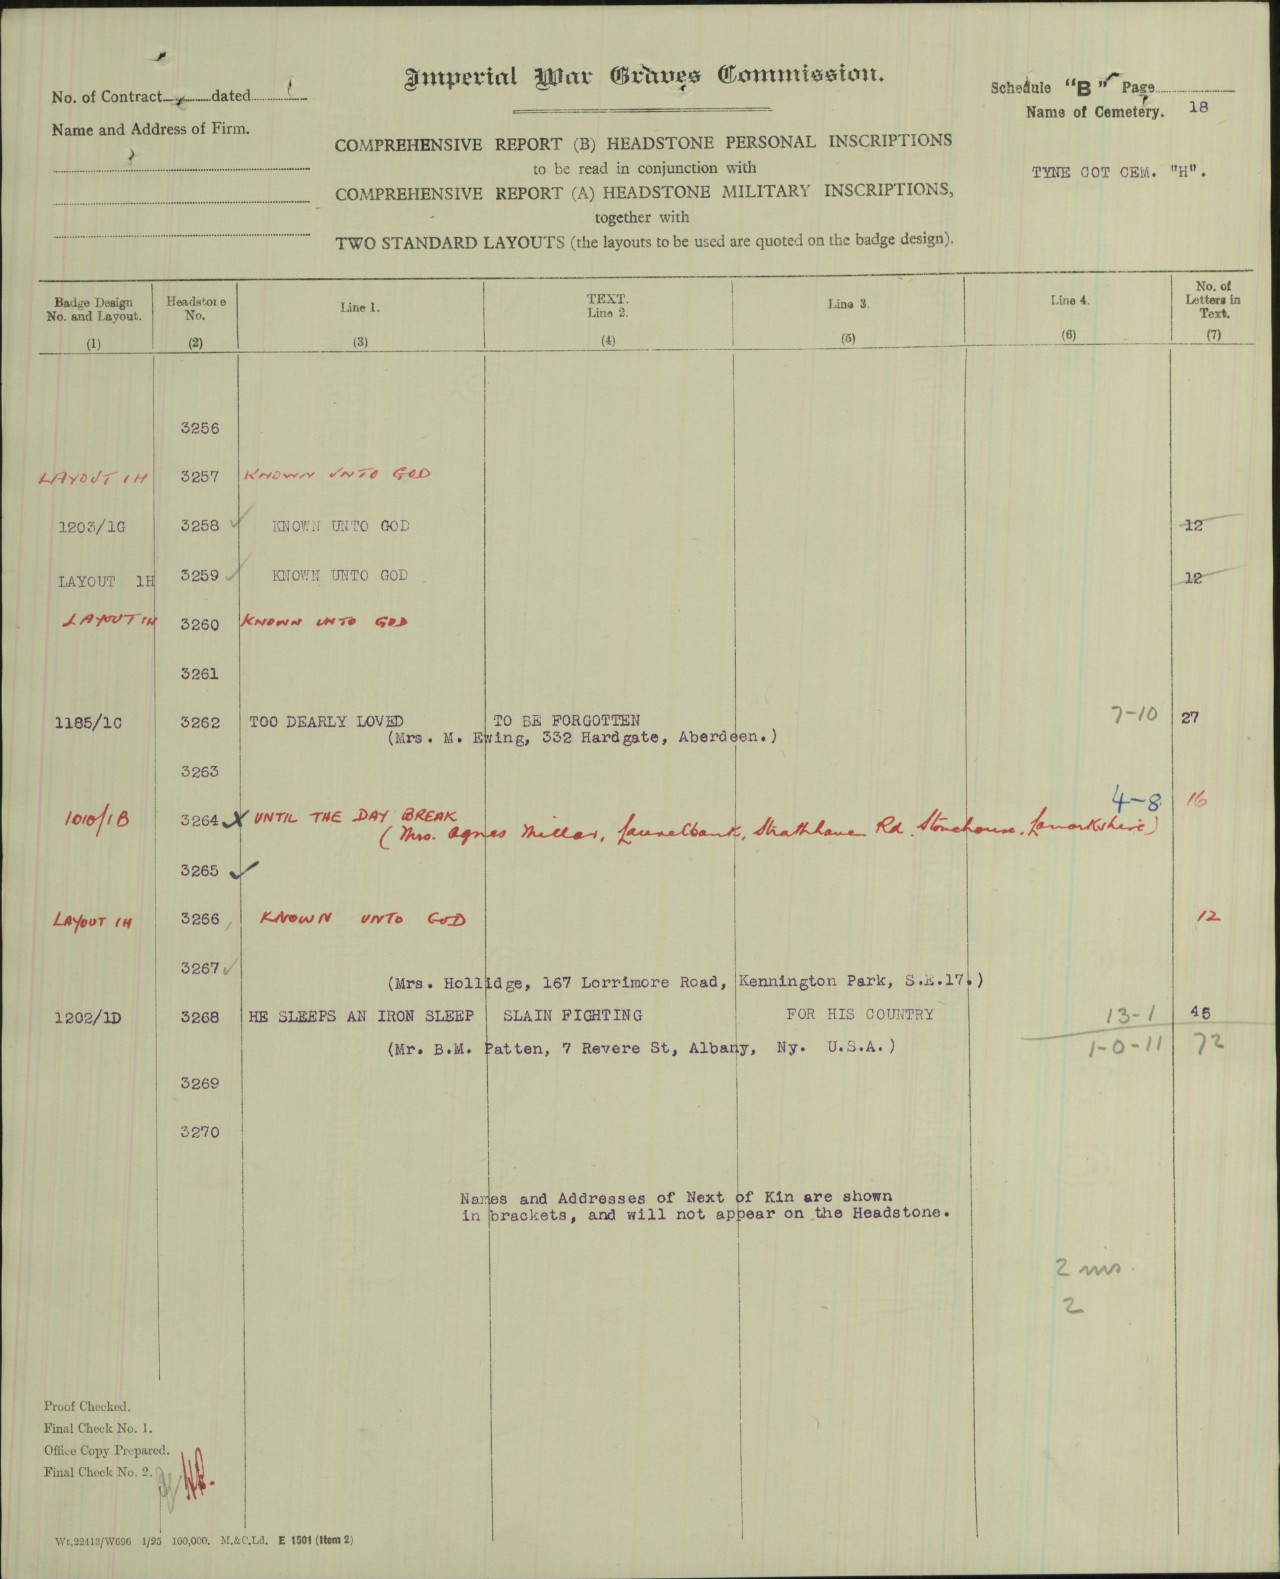 Imperial War Graves Commission.
No. of Contract dated
Name and Address of Firm.
Schedule "B" Page
Name of Cemetery. 18
TYNE COT CEM. "H".
COMPREHENSIVE REPORT (B) HEADSTONE PERSONAL INSCRIPTIONS
to be read in conjunction with
COMPREHENSIVE REPORT (A) HEADSTONE MILITARY INSCRIPTIONS,
together with
TWO STANDARD LAYOUTS (the layouts to be used are quoted on the badge design).
Badge Design No. and Layout. Headstone No. Line 1. TEXT. Line 2. Line 3. Line 4. No. of Letters in Text.
(1) (2) (3) (4) (5) (6) (7)
3256
LAYOUT 1H 3257 KNOWN UNTO GOD
1203/1G 3258 KNOWN UNTO GOD 12
LAYOUT 1H 3259 KNOWN UNTO GOD 12
LAYOUT 1H 3260 KNOWN UNTO GOD
3261
1185/1C 3262 TOO DEARLY LOVED TO BE FORGOTTEN 7-10 27
(Mrs. M. Ewing, 332 Hardgate, Aberdeen.)
3263
1010/1B 3264 X UNTIL THE DAY BREAK 4-8 16
(Mrs. Agnes Millar, Laurelbank, Strathhave Rd. Stonehouse. Lanarkshire)
3265
LAYOUT 1H 3266 KNOWN UNTO GOD 12
3267
(Mrs. Hollidge, 167 Lorrimore Road, Kennington Park, S.E.17.)
1202/1D 3268 HE SLEEPS AN IRON SLEEP SLAIN FIGHTING FOR HIS COUNTRY 13-1 45
(Mr. B.M. Patten, 7 Revere St, Albany, Ny. U.S.A.) 1-0-11 72
3269
3270
Names and Addresses of Next of Kin are shown
in brackets, and will not appear on the Headstone.
2 ins.
2
Proof Checked.
Final Check No. 1.
Office Copy Prepared.
Final Check No. 2.
Wt.22413/W696 1/25 100,000. M.&C.Ld. E 1501 (Item 2)